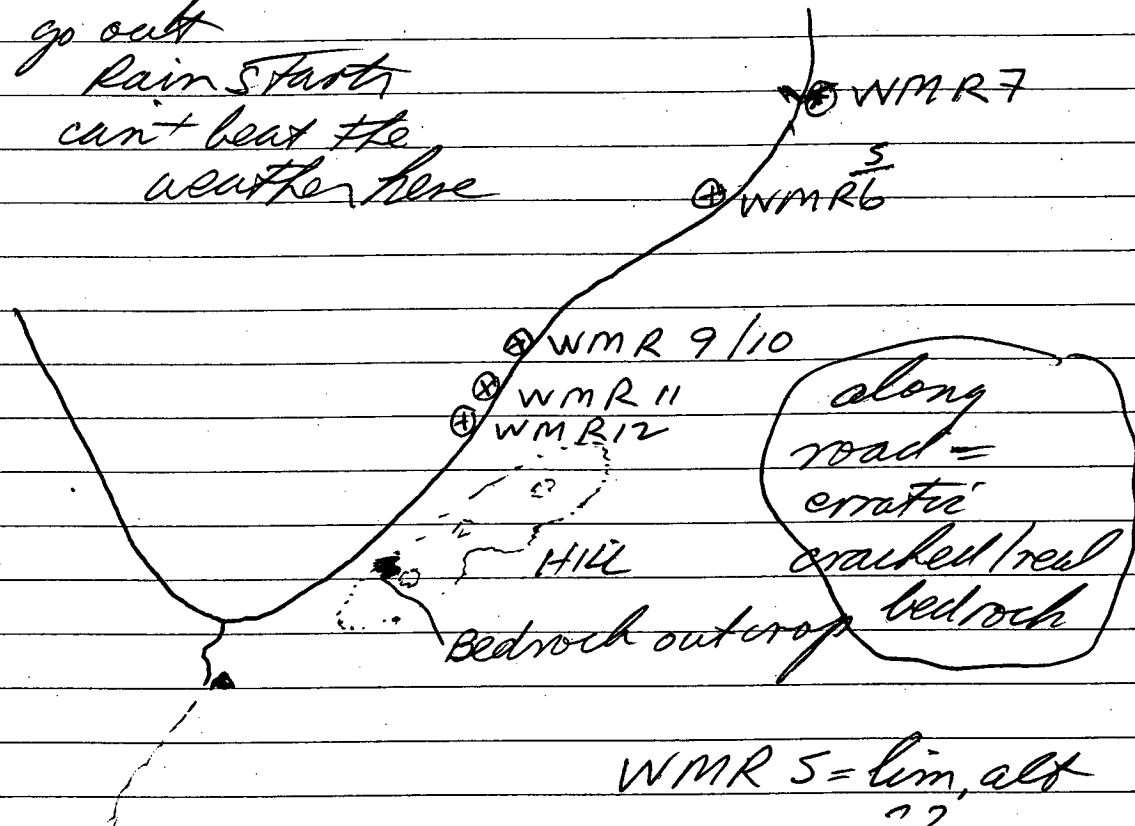 go out
Rain starts
can't beat the
weather here
WMR 7
5
WMR6
WMR 9/10
WMR 11
WMR12
along
road =
erratic
cracked/real
bedrock
HILL
Bedrock outcrop
WMR 5 = lim, alt
??